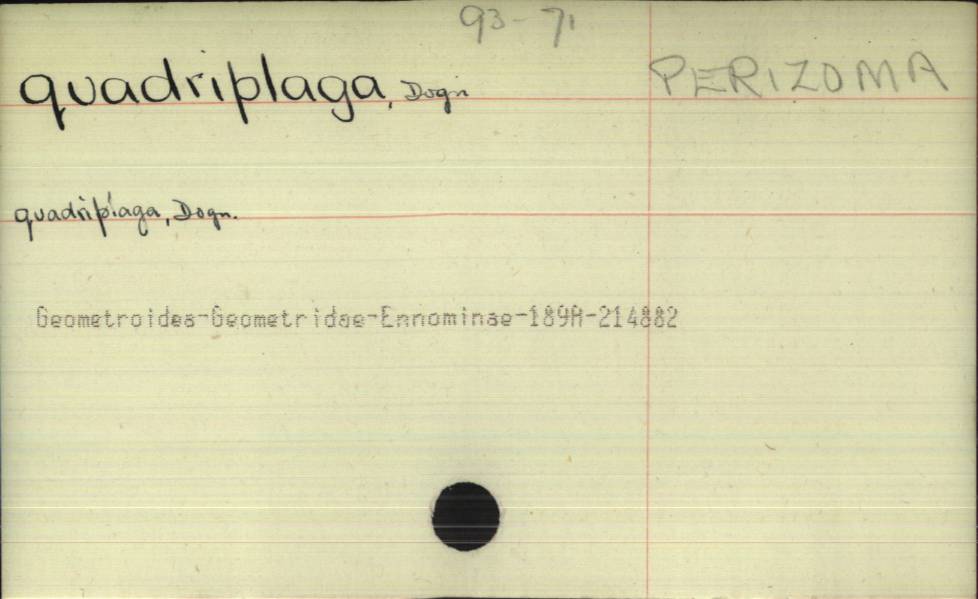 93-71
quadriplaga, Dogn PERIZOMA
quadriplaga, Dogn.
Geometroidea-Geometridae-Ennominae-189A-214882